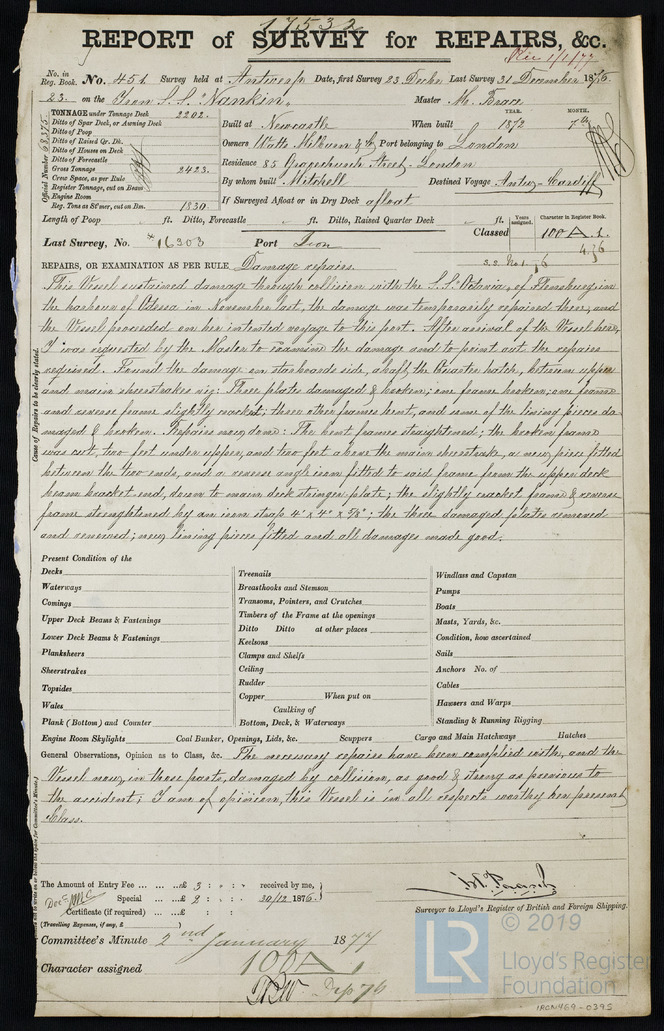 17532
REPORT of SURVEY for REPAIRS, &c.
Rec 1/1/77
No. in Reg. Book. No. 451 Survey held at Antwerp Date, first Survey 23 Decbr Last Survey 31 December 1876.
23. on the Iron S.S. "Nankin" Master
TONNAGE under Tonnage Deck 2202.
Ditto of Spar Deck, or Awning Deck
Ditto of Poop
Ditto of Raised Qr. Dk.
Ditto of Houses on Deck
Ditto of Forecastle
Gross Tonnage 2423.
Crew Space, as per Rule
Register Tonnage, cut on Beam
Engine Room
Reg. Tons as St'mer, cut on Bm. 1830.
Official Number 68375
YEAR. MONTH.
Built at Newcastle When built 1872 7th
Owners Watts Milburn & Co Port belonging to London
Residence 85 Gracechurch Street, London
By whom built Mitchell Destined Voyage Antw. - Cardiff
If Surveyed Afloat or in Dry Dock afloat
Length of Poop ft. Ditto, Forecastle ft. Ditto, Raised Quarter Deck ft.
Classed Years assigned. Character in Register Book. 100 A.1.
4.76
Last Survey, No. *16303 Port Iron
S.S. No. 1. 76
REPAIRS, OR EXAMINATION AS PER RULE Damage repairs.
Cause of Repairs to be clearly stated.
This Vessel sustained damage through collision with the S.S. "Octavia" of Flensburg, in
the harbour of Odessa in November last, the damage was temporarily repaired there, and
the Vessel proceeded on her intented voyage to this port. After arrival of the Vessel here,
I was requested by the Master to examine the damage and to point out the repairs
required. Found the damage on starboards side, abaft the Quarter hatch, between upper
and main sheerstrakes viz: Three plates damaged & broken; one frame broken; one frame
and reverse frame slightly cracket; three other frames bent, and some of the lining pieces da-
maged & broken. Repairs now done: The bent frames straightened; the broken frame
was cut, two feet under upper, and two feet above the main sheerstrake, a new piece fitted
between the two ends, and a reverse angle iron fitted to said frame from the upper deck
beam bracket end, down to main deck stringer plate; the slightly cracket frame & reverse
frame strenghtened by an iron strap 4' x 4" x 5/8"; the three damaged plates removed
and renewed; new lining pieces fitted and all damages made good.
Present Condition of the
Decks
Waterways
Comings
Upper Deck Beams & Fastenings
Lower Deck Beams & Fastenings
Planksheers
Sheerstrakes
Topsides
Wales
Plank (Bottom) and Counter
Treenails
Breasthooks and Stemson
Transoms, Pointers, and Crutches
Timbers of the Frame at the openings
Ditto Ditto at other places
Keelsons
Clamps and Shelfs
Ceiling
Rudder
Copper When put on
Caulking of
Bottom, Deck, & Waterways
Windlass and Capstan
Pumps
Boats
Masts, Yards, &c.
Condition, how ascertained
Sails
Anchors No. of
Cables
Hawsers and Warps
Standing & Running Rigging
Engine Room Skylights Coal Bunker, Openings, Lids, &c. Scuppers Cargo and Main Hatchways Hatches
General Observations, Opinion as to Class, &c. The necessary repairs have been complied with, and the
Vessel now, in those parts, damaged by collision, as good & strong as previous to
the accident; I am of opinion, this Vessel is in all respects worthy her present
Class.
The Amount of Entry Fee £ 3 : : received by me,
Special £ 2 : : 30/12 1876.
Certificate (if required) £ : :
(Travelling Expenses, if any, £ )
Surveyor to Lloyd's Register of British and Foreign Shipping.
Committee's Minute 2nd January 1877
Character assigned 100A1
76
© 2019
LR
Lloyd's Register
Foundation
IRON469-0395